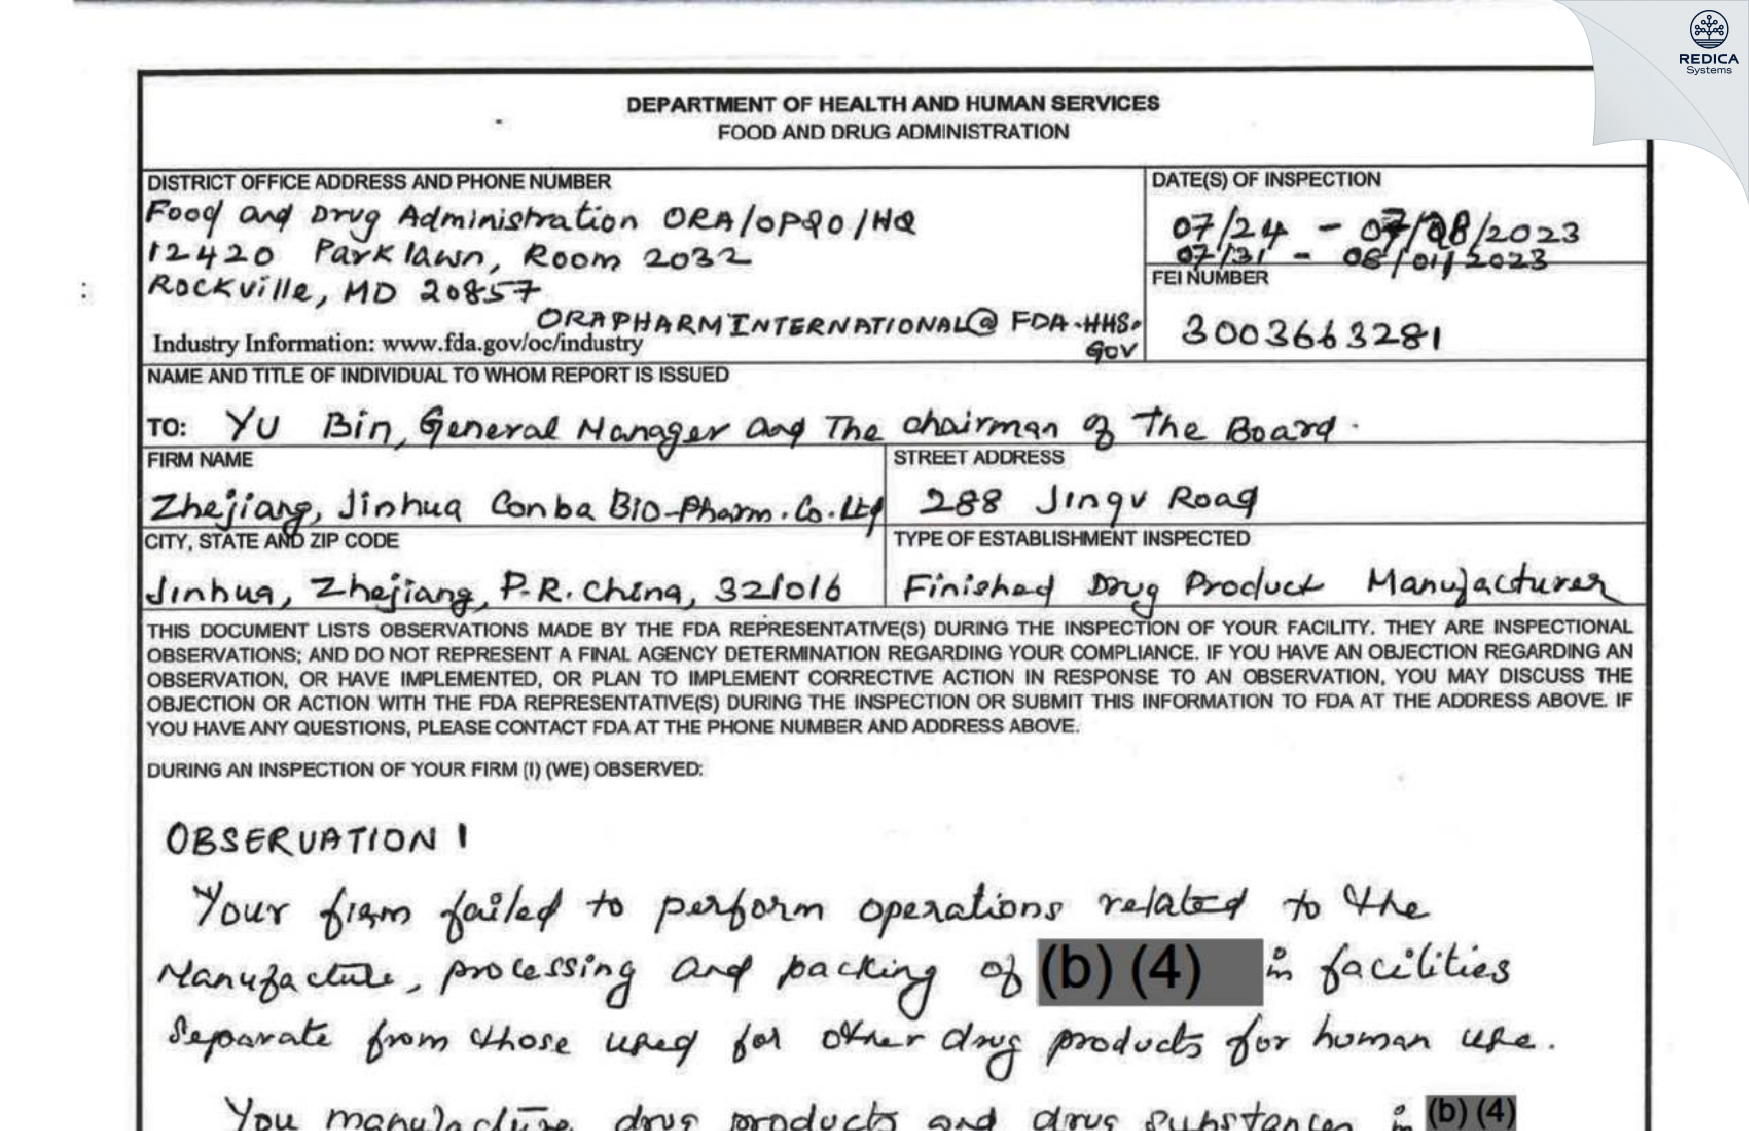 REDICA
Systems
DEPARTMENT OF HEALTH AND HUMAN SERVICES
FOOD AND DRUG ADMINISTRATION
DISTRICT OFFICE ADDRESS AND PHONE NUMBER
Food and Drug Administration ORA/OPQO/HQ
12420 Parklawn, Room 2032
Rockville, MD 20857
ORAPHARMINTERNATIONAL@FDA.HHS.
GOV
Industry Information: www.fda.gov/oc/industry
DATE(S) OF INSPECTION
07/24 - 07/28/2023
07/31 - 08/01/2023
FEI NUMBER
3003663281
NAME AND TITLE OF INDIVIDUAL TO WHOM REPORT IS ISSUED
TO: YU Bin, General Manager and The chairman of The Board.
FIRM NAME
Zhejiang, Jinhua Conba Bio-Pharm. Co. Ltd
STREET ADDRESS
288 Jinqu Road
CITY, STATE AND ZIP CODE
Jinhua, Zhejiang, P.R. China, 321016
TYPE OF ESTABLISHMENT INSPECTED
Finished Drug Product Manufacturer
THIS DOCUMENT LISTS OBSERVATIONS MADE BY THE FDA REPRESENTATIVE(S) DURING THE INSPECTION OF YOUR FACILITY. THEY ARE INSPECTIONAL
OBSERVATIONS; AND DO NOT REPRESENT A FINAL AGENCY DETERMINATION REGARDING YOUR COMPLIANCE. IF YOU HAVE AN OBJECTION REGARDING AN
OBSERVATION, OR HAVE IMPLEMENTED, OR PLAN TO IMPLEMENT CORRECTIVE ACTION IN RESPONSE TO AN OBSERVATION, YOU MAY DISCUSS THE
OBJECTION OR ACTION WITH THE FDA REPRESENTATIVE(S) DURING THE INSPECTION OR SUBMIT THIS INFORMATION TO FDA AT THE ADDRESS ABOVE. IF
YOU HAVE ANY QUESTIONS, PLEASE CONTACT FDA AT THE PHONE NUMBER AND ADDRESS ABOVE.
DURING AN INSPECTION OF YOUR FIRM (I) (WE) OBSERVED:
OBSERVATION 1
Your firm failed to perform operations related to the
Manufacture, processing and packing of (b) (4) in facilities
Separate from those used for other drug products for human use.
You manufacture drug products and drug substances in (b) (4)